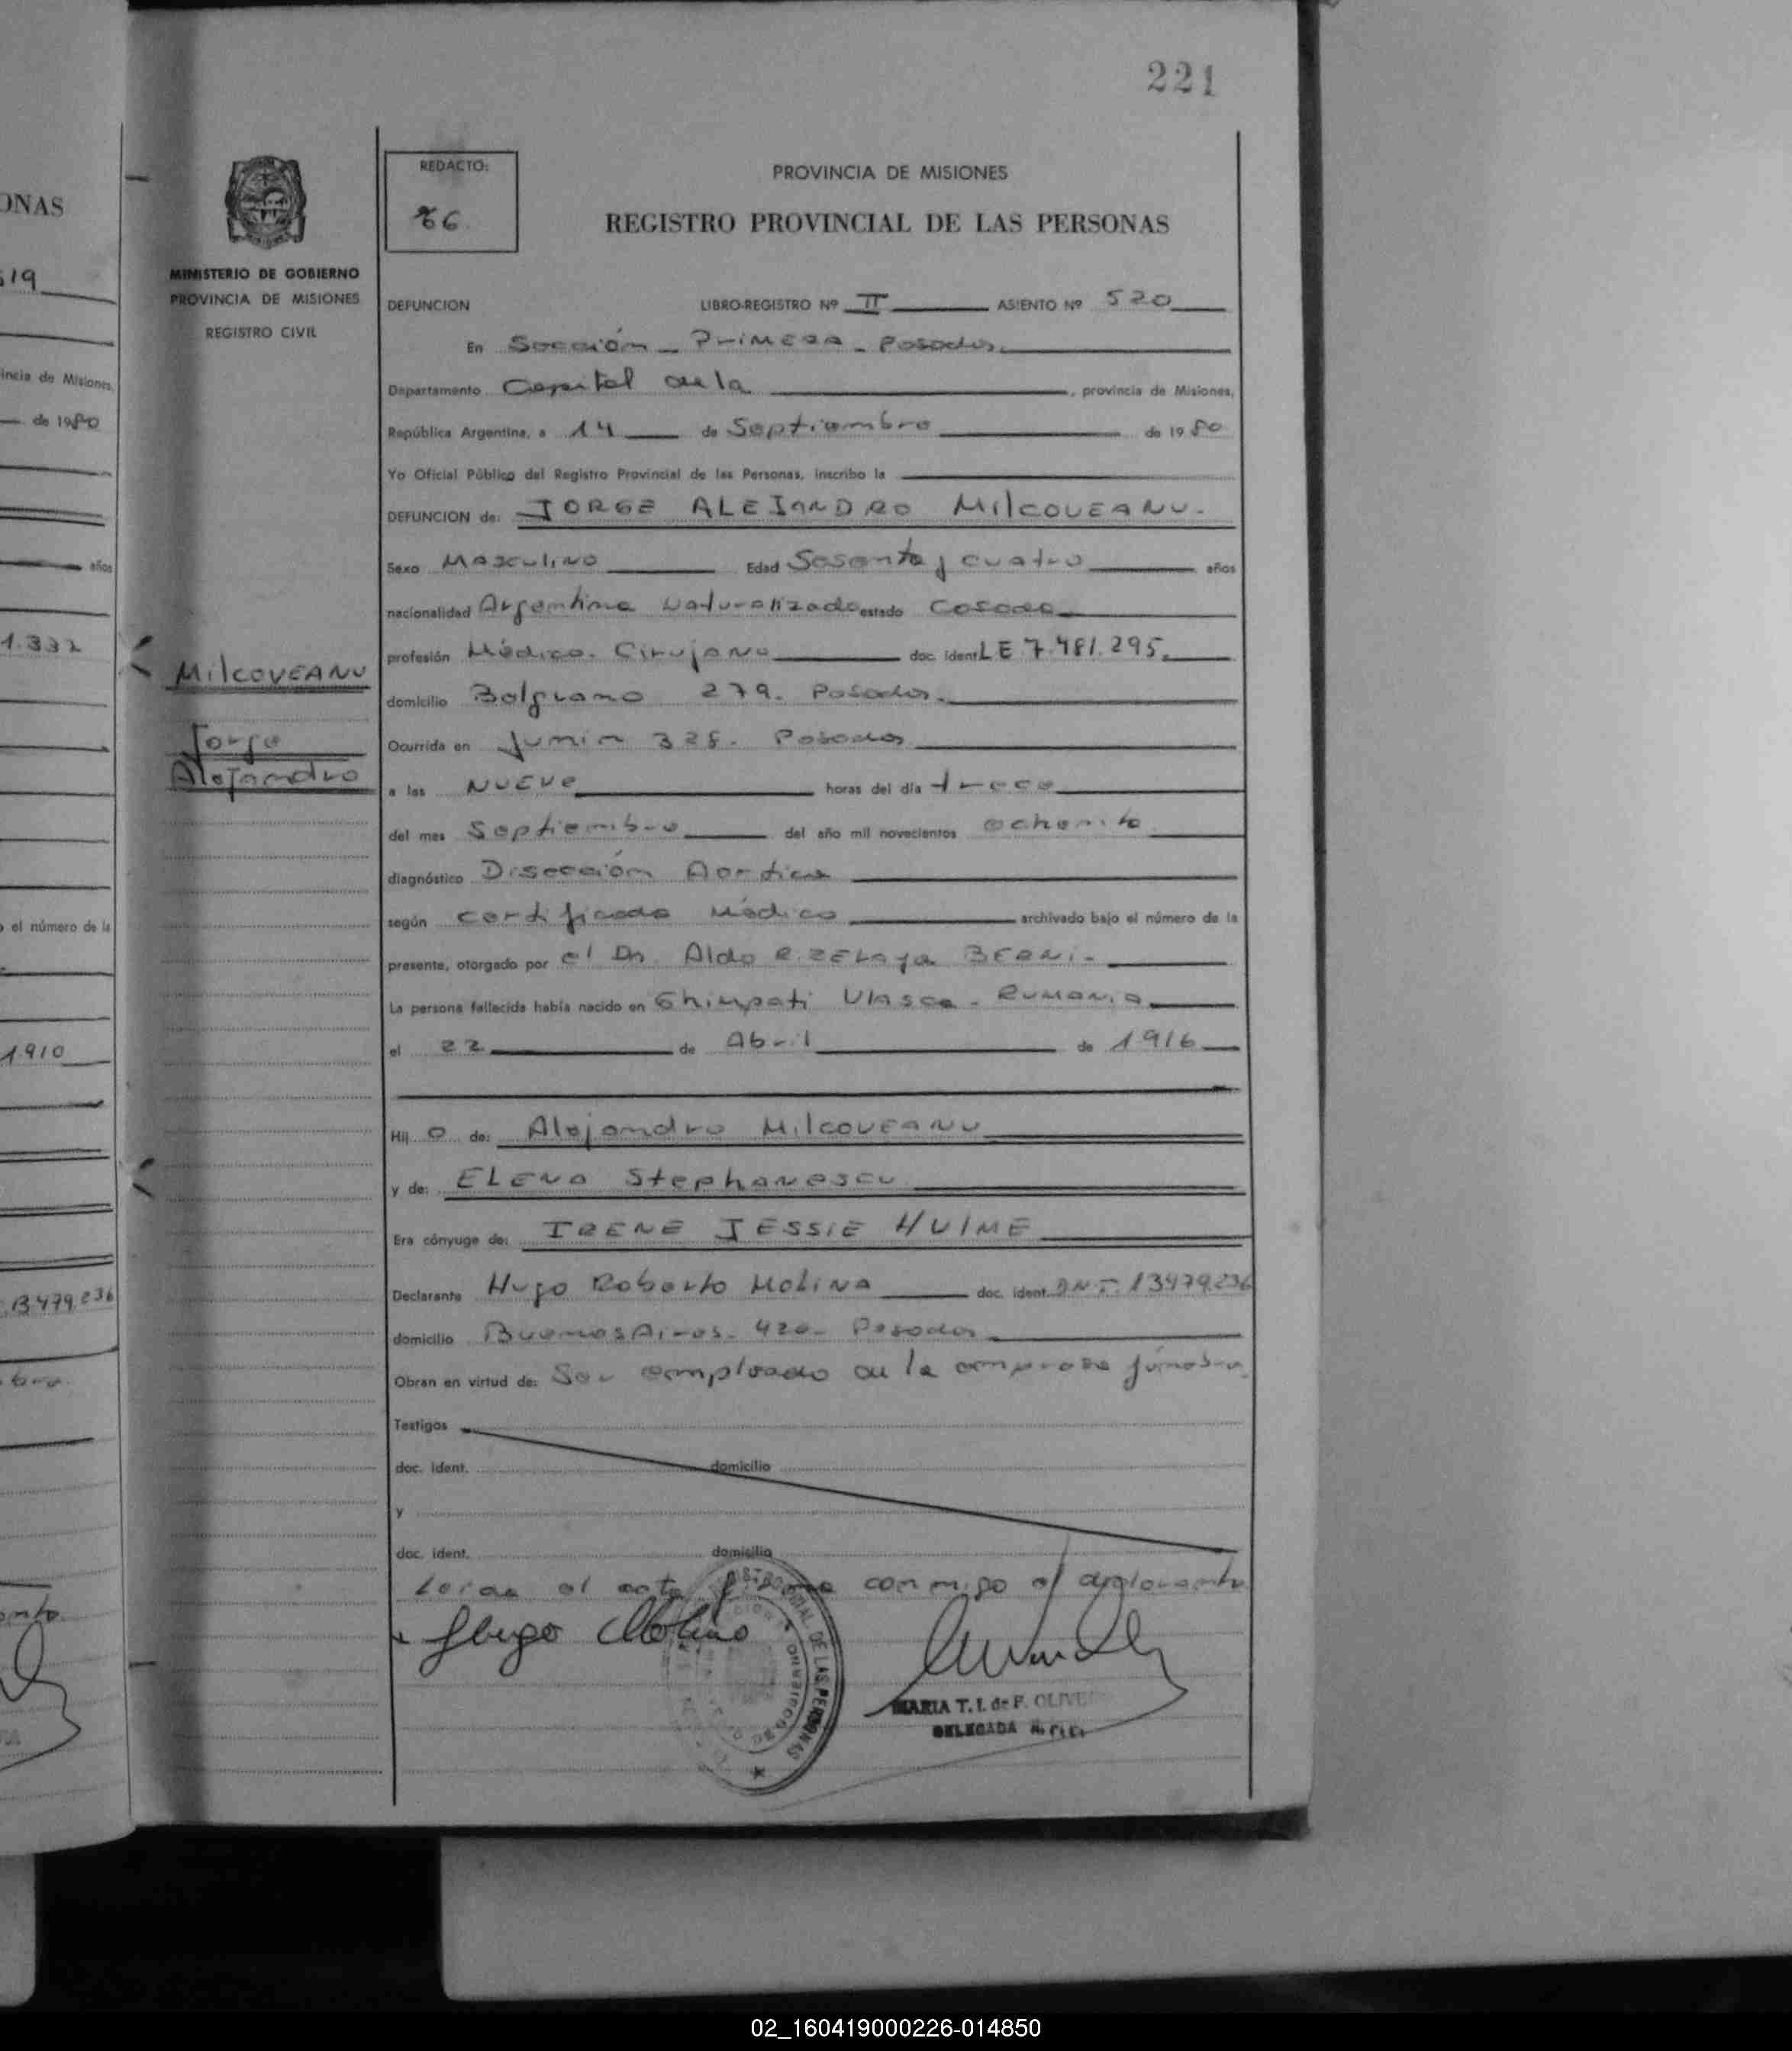 221
ONAS
REDACTO:
PROVINCIA DE MISIONES
REGISTRO PROVINCIAL DE LAS PERSONAS
MINISTERIO DE GOBIERNO
PROVINCIA DE MISIONES
REGISTRO CIVIL
DEFUNCION LIBRO-REGISTRO Nº II ASIENTO Nº 520
En Sección Primera - Posadas
Departamento Capital de la , provincia de Misiones,
República Argentina, a 14 de Septiembre de 1980
Yo Oficial Público del Registro Provincial de las Personas, inscribo la
DEFUNCION de: JORGE ALEJANDRO MilCOVEANU.
Sexo Masculino Edad Sesenta y cuatro años
nacionalidad Argentina Naturalizado estado Casado
profesión Médico. Cirujano doc. ident LE 7.481.295.
domicilio Belgrano 279. Posadas.
Ocurrida en Junin 328. Posadas
a las NUEVE horas del día trece
del mes Septiembre del año mil novecientos ochenta
diagnóstico Disección Aortica
según certificado Médico archivado bajo el número de la
presente, otorgado por el Dr. Aldo R. ZELAya BERNi-
La persona fallecida había nacido en Ghimpati Vlasca - RUMANIA
el 22 de Abril de 1916
Hij o de: Alejandro MilCOVEANU
y de: ELENA Stephanescu
Era cónyuge de: IRENE JESSIE HULME
Declarante Hugo Roberto MOLINA doc. ident. DNI. 13479.236
domicilio Buenos Aires. 420- Posadas
Obran en virtud de: Ser empleado de la empresa fúnebre
Testigos
doc. ident. domicilio
y
doc. ident. domicilio
Leida el acta firma conmigo el declarante
Hugo Molina
MARIA T. I. de F. OLIVE
DELEGADA
MilCOVEANU
Jorge
Alejandro
519
incia de Misiones,
de 1980
años
1.332
el número de la
1910
13479.236
02_160419000226-014850